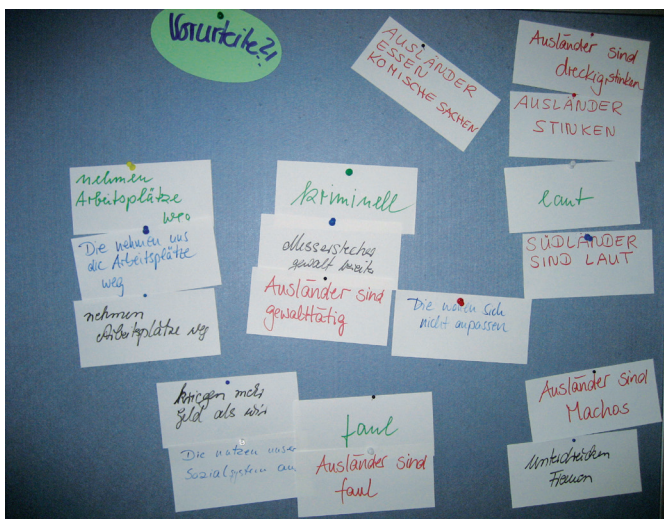 Vorurteile?!
AUSLÄNDER
ESSEN
KOMISCHE SACHEN
Ausländer sind
dreckig, stinken
AUSLÄNDER
STINKEN
nehmen
Arbeitsplätze
weg
Die nehmen uns
die Arbeitsplätze
weg
nehmen
Arbeitsplätze weg
kriminell
Messerstecher
gewaltbereit
Ausländer sind
gewalttätig
Die wollen sich
nicht anpassen
laut
SÜDLÄNDER
SIND LAUT
kriegen mehr
Geld als wir
Die nutzen unser
Sozialsystem au
faul
Ausländer sind
faul
Ausländer sind
Machos
unterdrücken
Frauen